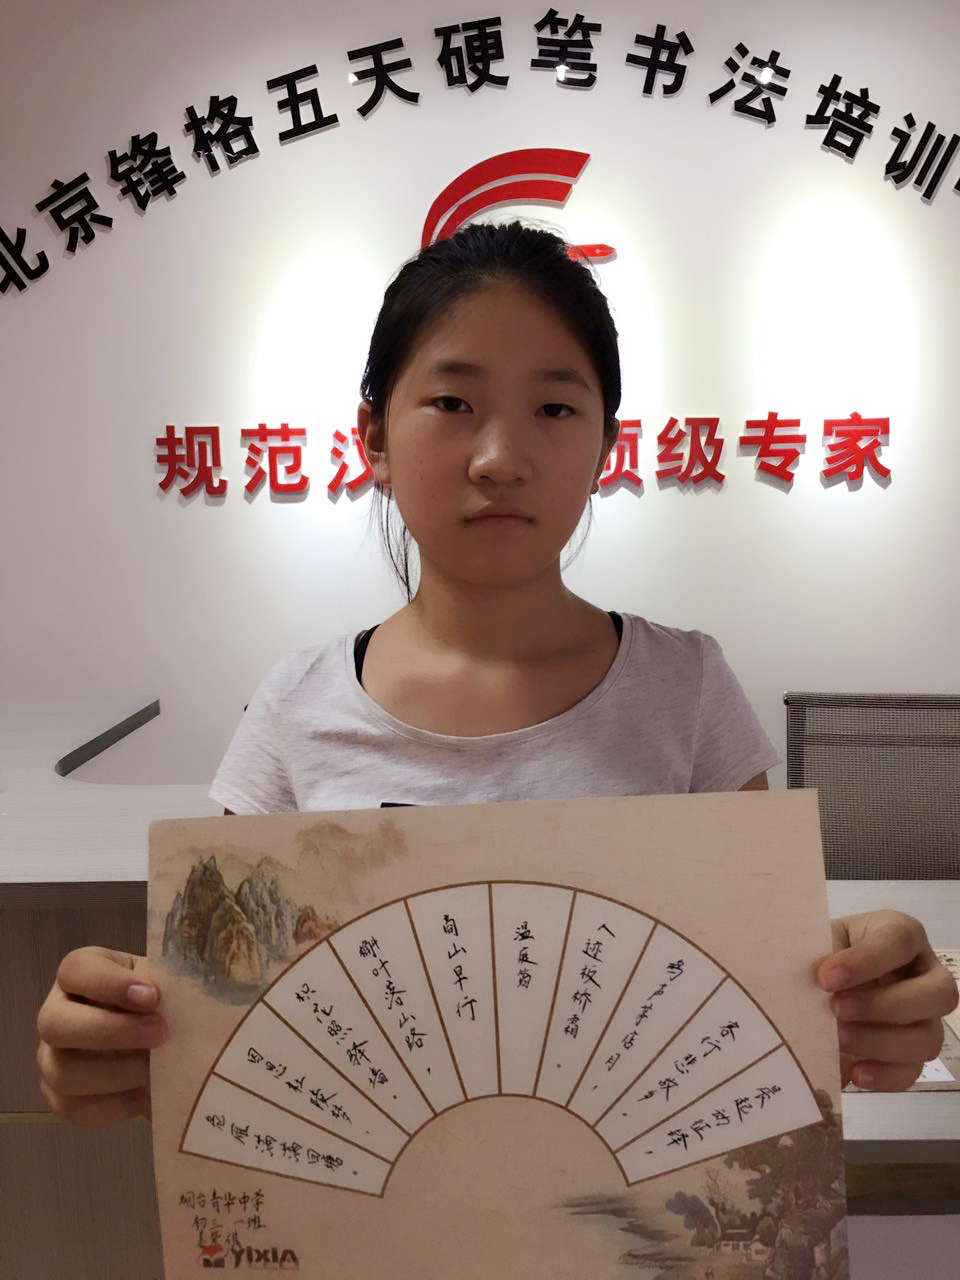 北京锋格五天硬笔书法培训
规范汉 顶级专家
晨起动征铎，
客行悲故乡，
鸡声茅店月，
人迹板桥霜。
温庭筠
商山早行
槲叶落山路，
枳花照驿墙。
因思杜陵梦，
凫雁满满回塘。
烟台青华中学
初三一班
YIXIA